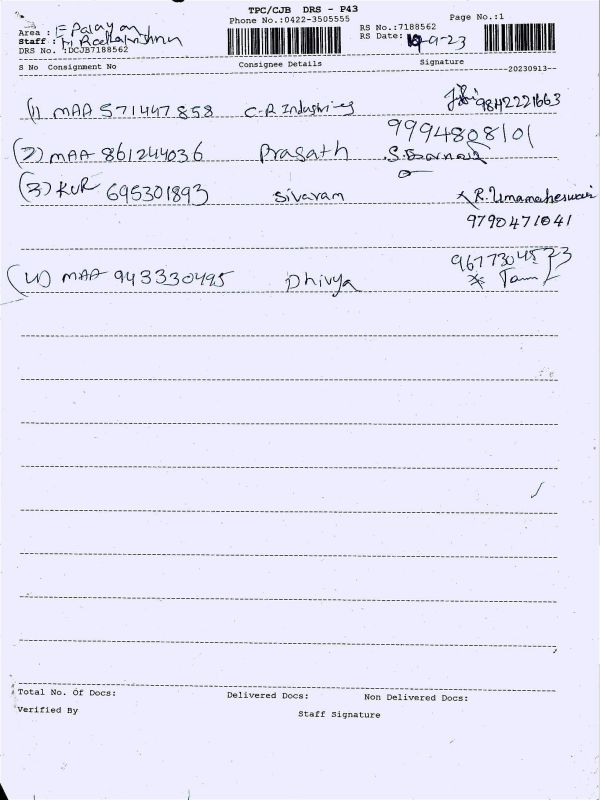 TPC/CJB DRS - P43
Phone No.:0422-3505555 Page No.:1
Area : E Palayam RS No.:7188562
Staff : RS Date: -9-23
DRS No. :DCJB7188562
S No Consignment No Consignee Details Signature
--20230913--
(1) MAA 571447858 C-R Industries 9842221663
9994808101
(2) MAA 861244036 Prasath
(3) KUR 695301893 Sivaram R. Umamaheswari
9790471041
9677304573
(4) MAA 943330495 Dhivya
Total No. Of Docs: Delivered Docs: Non Delivered Docs:
Verified By Staff Signature